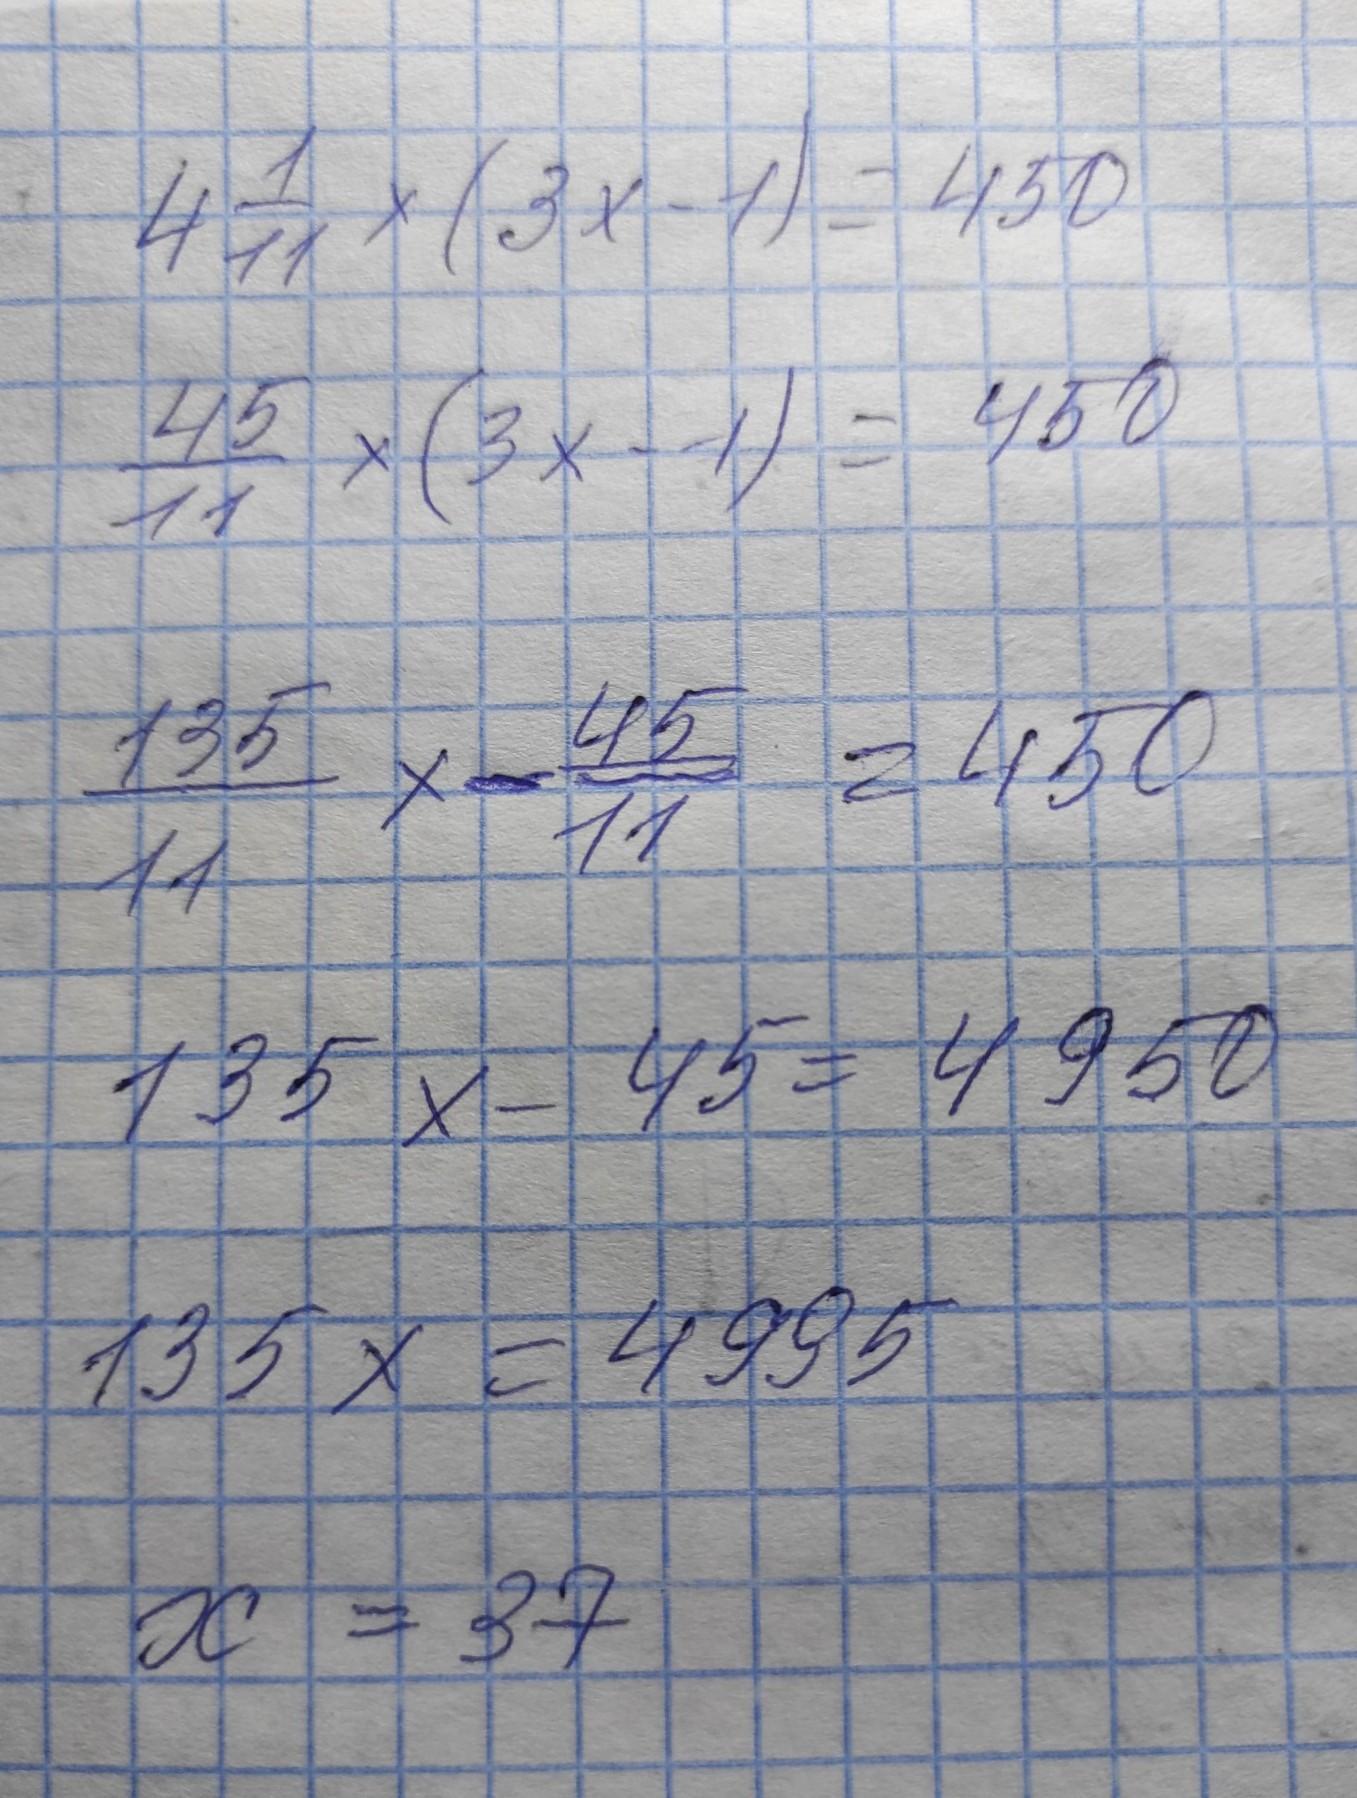 4 1/11 × (3x - 1) = 450
45/11 × (3x - 1) = 450
135/11 x - 45/11 = 450
135x - 45 = 4950
135x = 4995
x = 37